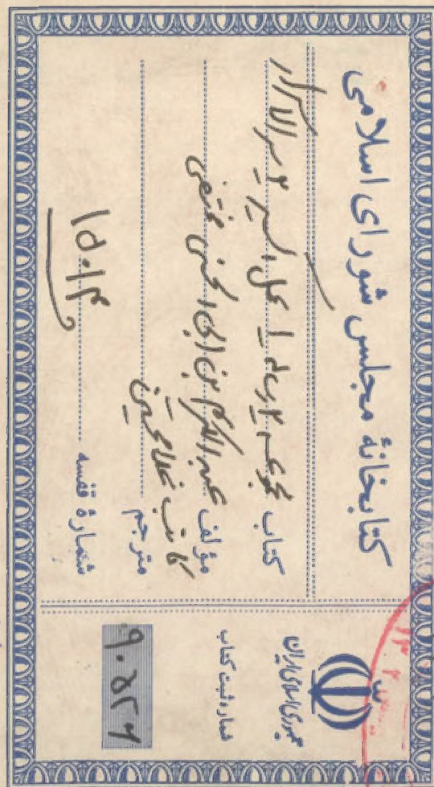 کتابخانهٔ مجلس شورای اسلامی
کتاب مجموعه ۲ رساله ۱ عمل اکسیر ۲ سر الاسرار
مؤلف عبدالکریم بن ابی الحسن
مترجم کاتب غلامحسین
شمارهٔ قفسه ۱۵۰۱۴
جمهوری اسلامی ایران
شماره ثبت کتاب
۹۰۵۲۶